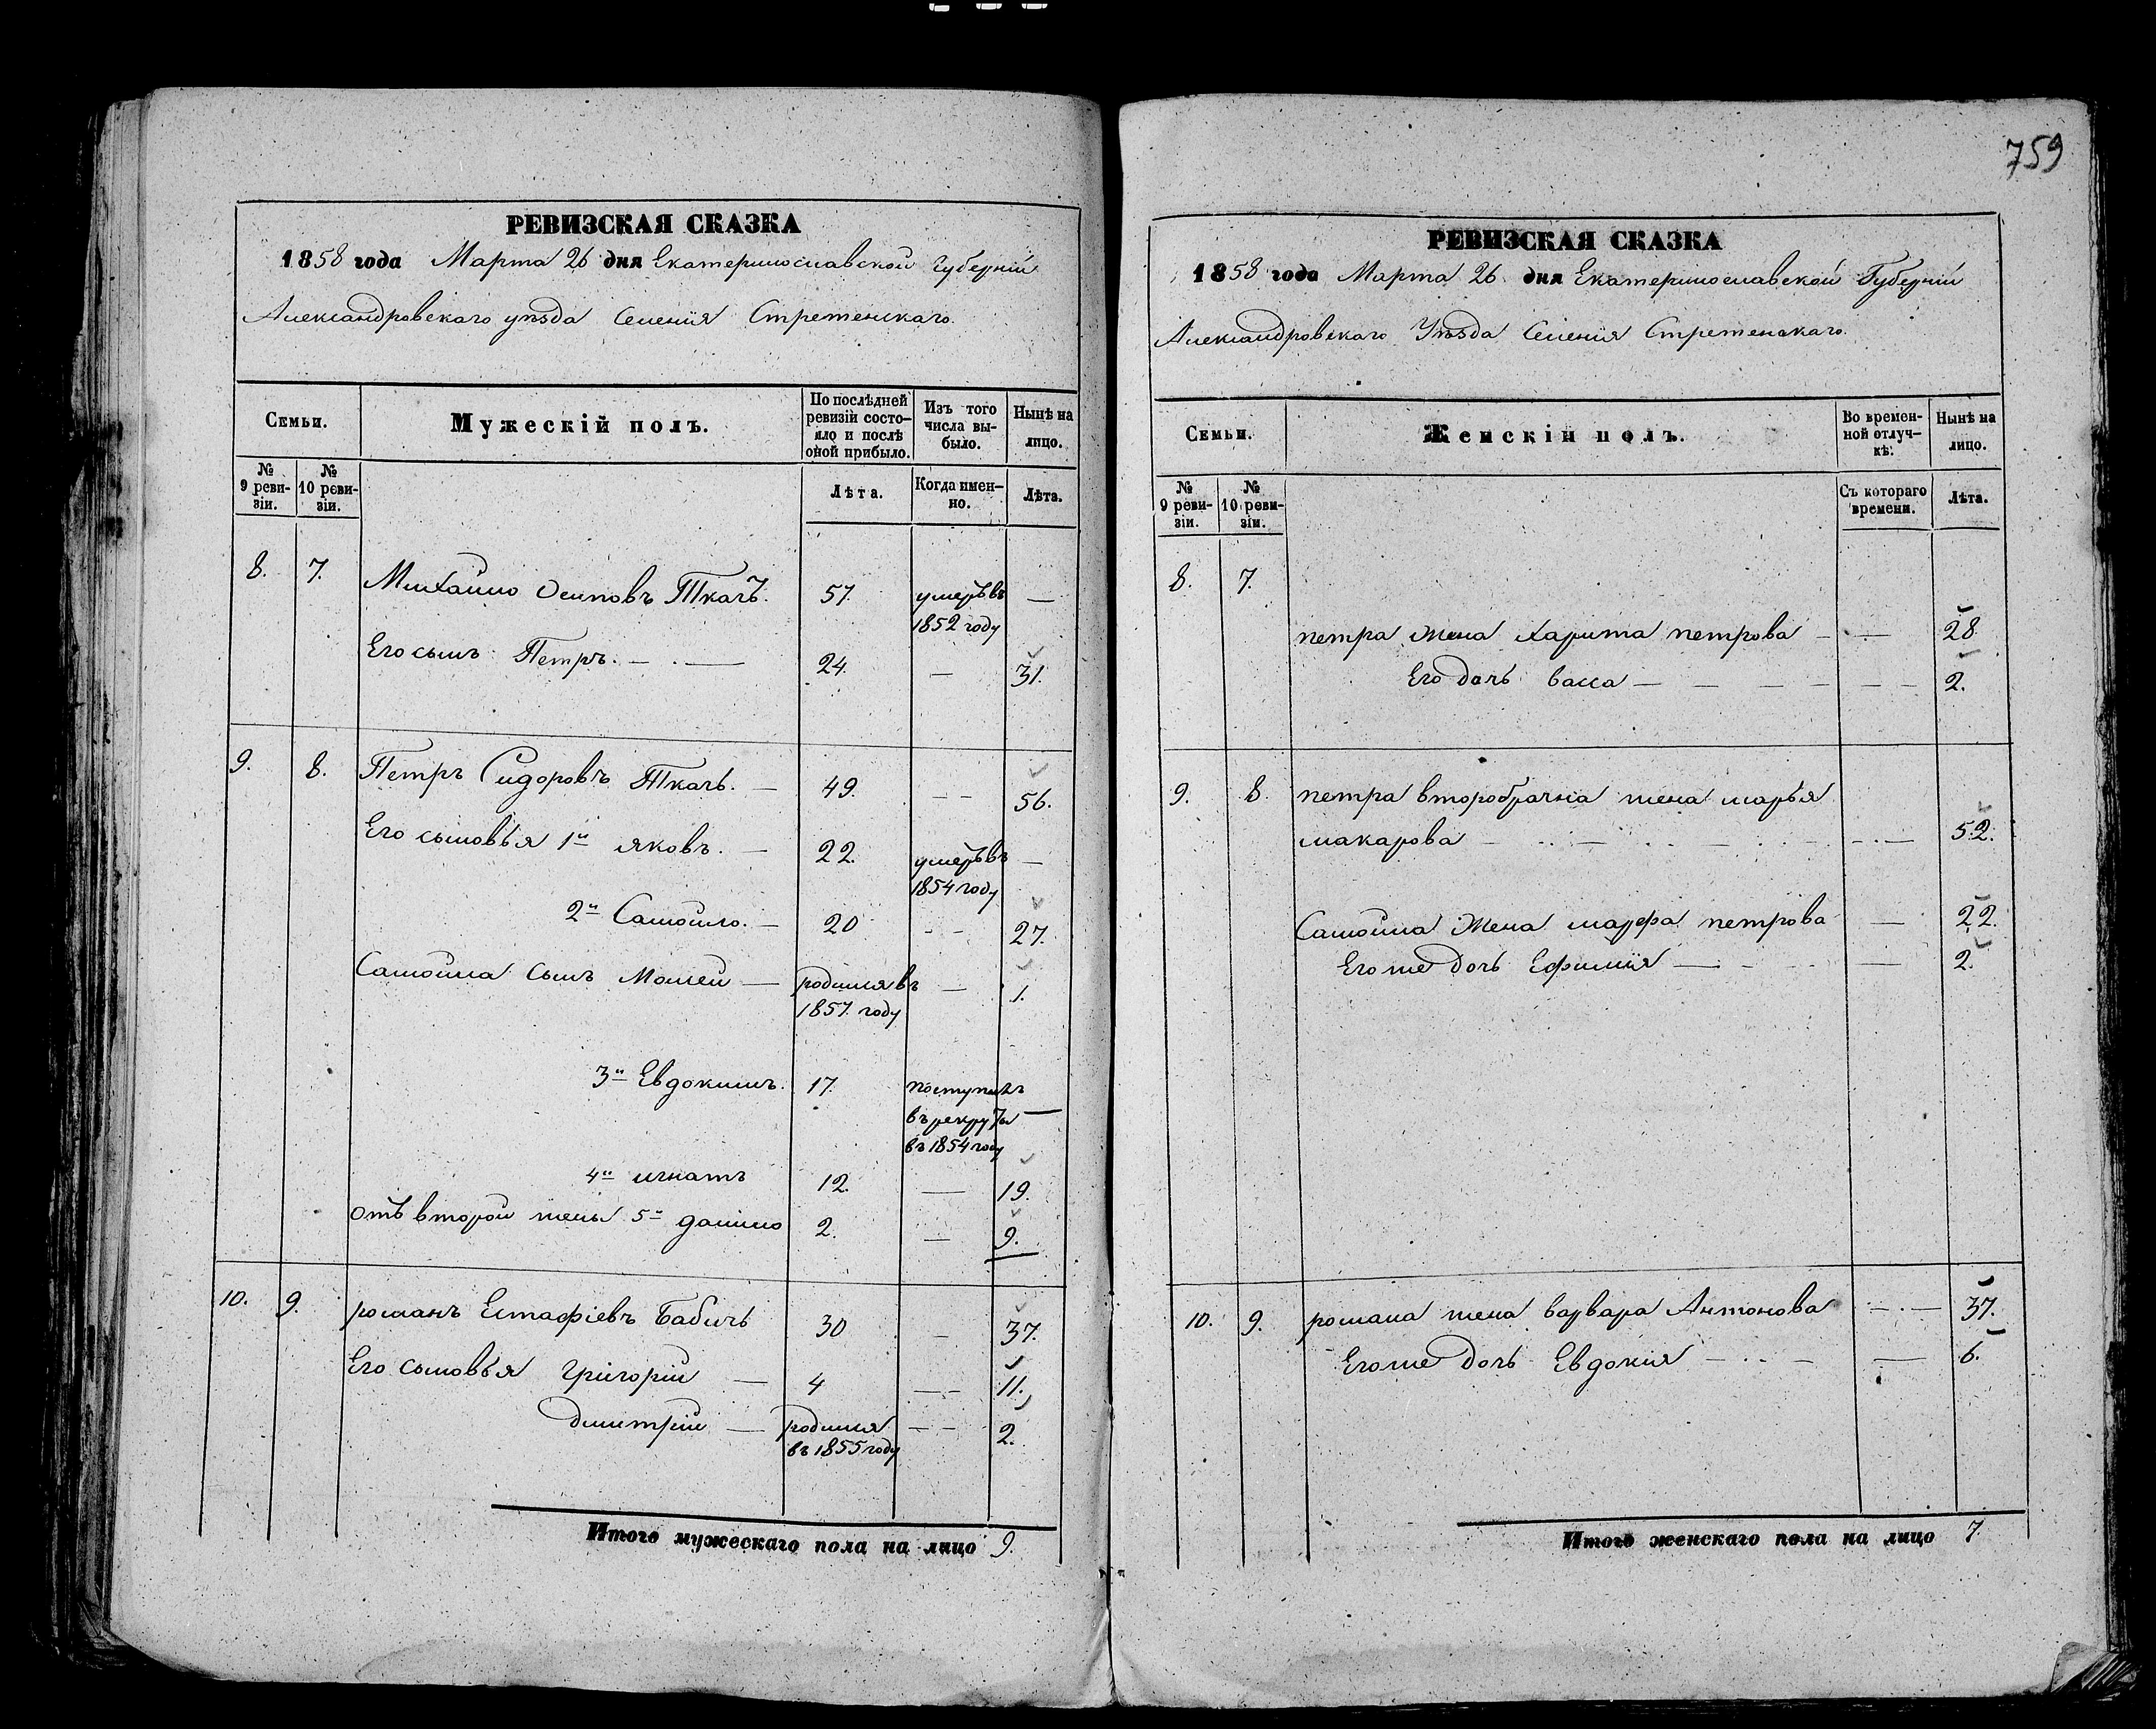 РЕВИЗСКАЯ СКАЗКА
1858 года Марта 26 дня Екатеринославской Губерніи
Александровскаго уѣзда Селенія Стретенскаго.
Семьи.
Мужескій полъ.
По послѣдней ревизіи состояло и послѣ оной прибыло.
Изъ того числа выбыло.
Нынѣ на лицо.
№ 9 ревизіи.
№ 10 ревизіи.
Лѣта.
Когда именно.
Лѣта.
8. 7. Михайло Осиповъ Ткачъ. 57. умеръ въ 1852 году —
Его сынъ Петръ. — 24. — 31.
9. 8. Петръ Сидоровъ Ткачъ. — 49. — — 56.
Его сыновья 1й яковъ. — 22. умеръ въ 1854 году —
2й Самойло. — 20 — — 27.
Самойла сынъ Мокей — родился въ 1857 году — 1.
3й Евдокимъ. 17. поступилъ въ рекруты въ 1854 году —
4й игнатъ 12. — 19.
отъ второй жены 5й данило 2. — 9.
10. 9. романъ Естафіевъ Бабичъ 30 — 37.
Его сыновья григорій — 4 — — 11.
дмитрій — родился въ 1855 году — — 2.
Итого мужескаго пола на лицо 9.
759
РЕВИЗСКАЯ СКАЗКА
1858 года Марта 26 дня Екатеринославской Губерніи
Александровскаго Уѣзда Селенія Стретенскаго.
Семьи.
Женскій полъ.
Во временной отлучкѣ.
Нынѣ на лицо.
№ 9 ревизіи.
№ 10 ревизіи.
Съ котораго времени.
Лѣта.
8. 7.
петра жена Харита петрова — — 28.
Его дочь васса — — — — — — 2.
9. 8. петра второбрачна жена марья
макарова — — — — 52.
Самойла жена марфа петрова — 22.
Его же дочь Ефимія — — — 2.
10. 9. романа жена варвара Антонова — — 37.
Его же дочь Евдокия — — — 6.
Итого женскаго пола на лицо 7